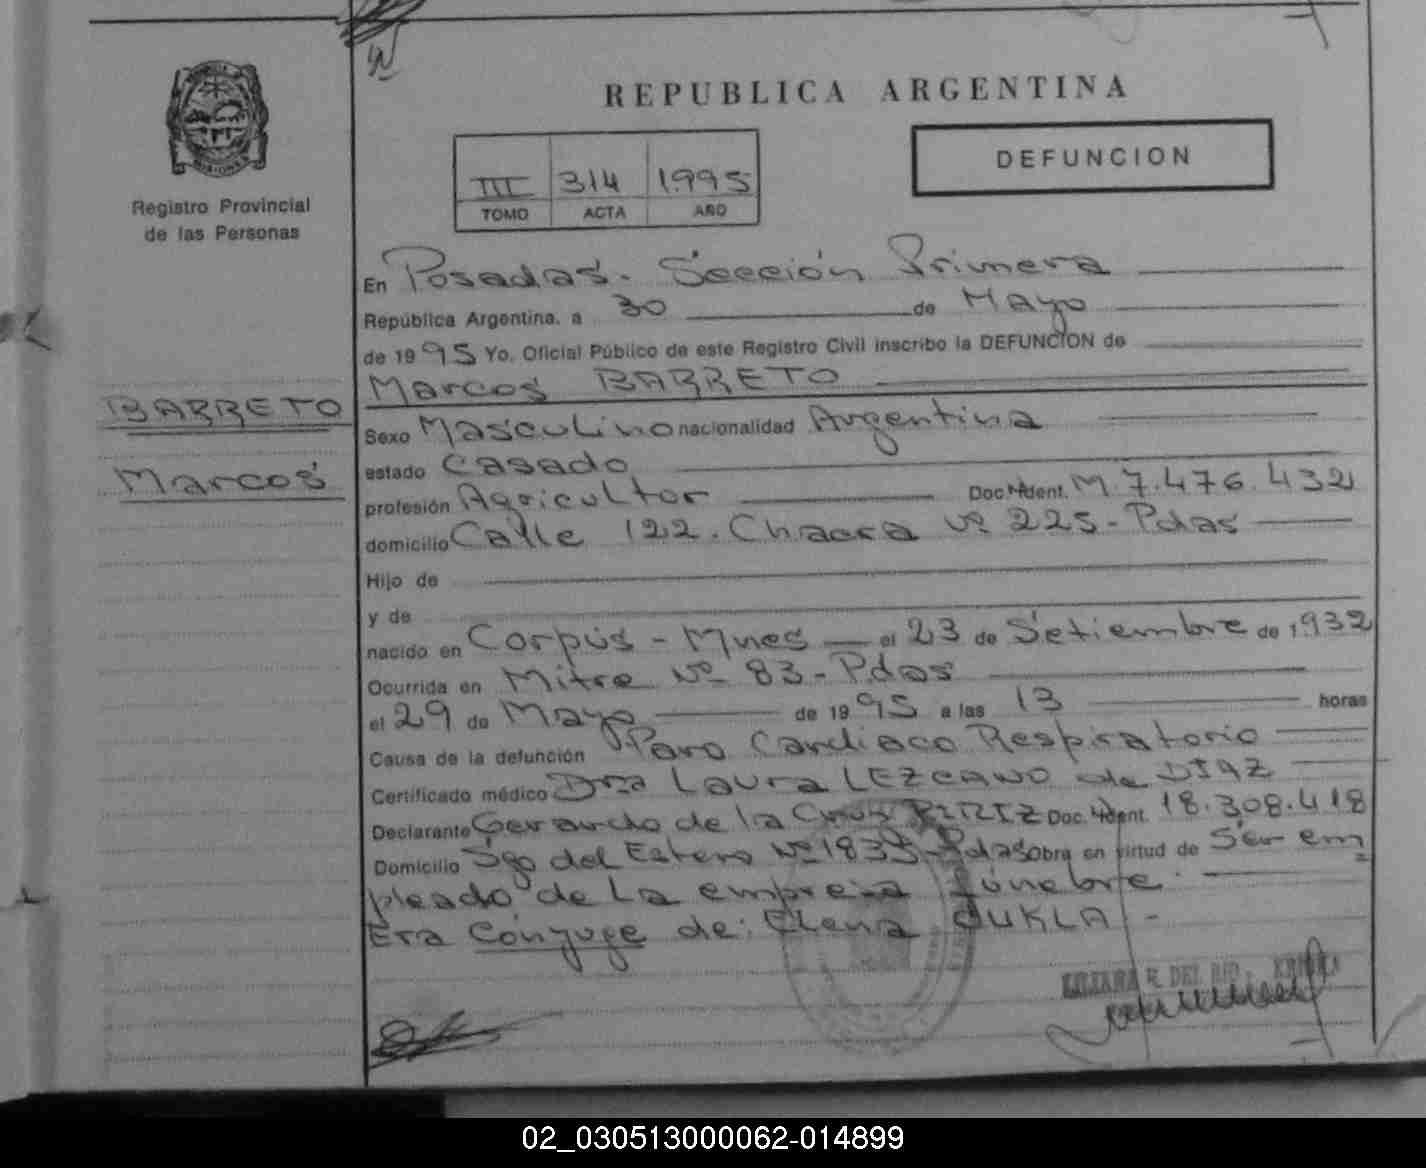 REPUBLICA ARGENTINA
DEFUNCION
III 314 1995
TOMO ACTA AÑO
Registro Provincial
de las Personas
MISIONES
BARRETO
Marcos
En Posadas. Sección Primera
República Argentina, a 30 de Mayo
de 1995 Yo, Oficial Público de este Registro Civil inscribo la DEFUNCION de
Marcos BARRETO
Sexo Masculino nacionalidad Argentina
estado Casado
profesión Agricultor Doc. Ident. M. 7.476.432
domicilio Calle 122. Chacra Nº 225 - Pdas
Hijo de
y de
nacido en Corpus - Mnes el 23 de Setiembre de 1.932
Ocurrida en Mitre Nº 83 - Pdas
el 29 de Mayo de 1995 a las 13 horas
Causa de la defunción Paro Cardiaco Respiratorio
Certificado médico Dra Laura LEZCANO de DIAZ
Declarante Gerardo de la Cruz Doc. Ident. 18.308.418
Domicilio Sgo del Estero Nº 1835 - Pdas Obra en virtud de Ser em
pleado de la empresa fúnebre
Era Conyuge de: Elena
LILIANA R. DEL RIO
02_030513000062-014899